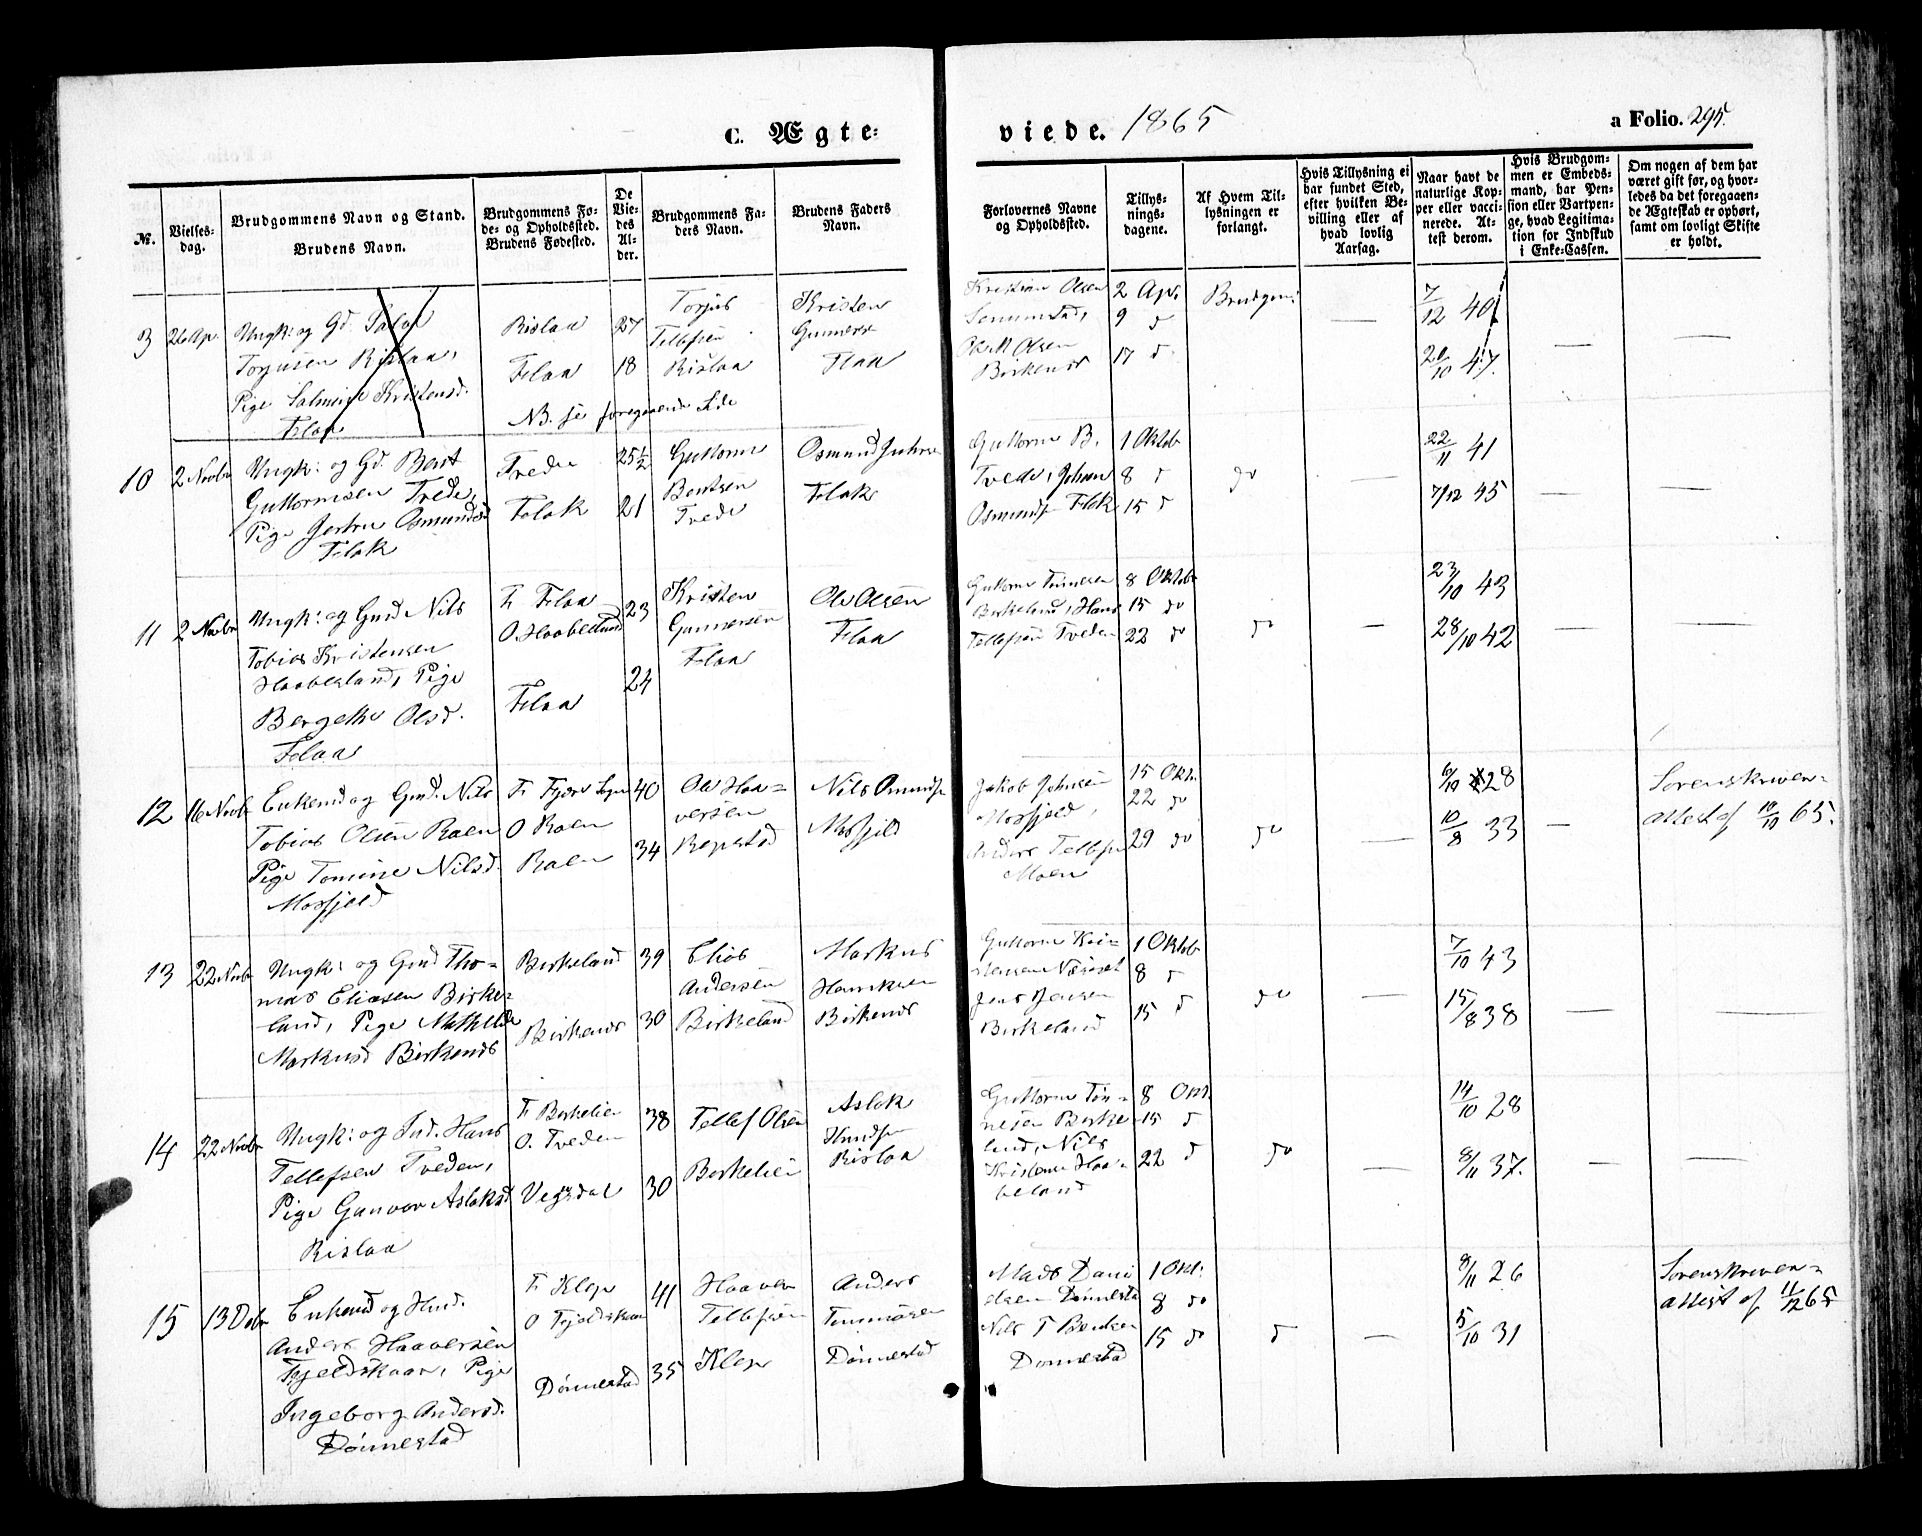 C. Ægte-
viede. 1865
a Folio. 295.
№.
Vielses-
dag.
Brudgommens Navn og Stand.
Brudens Navn.
Brudgommens Fø-
de- og Opholdssted.
Brudens Fødested.
De
Vie-
des
Al-
der.
Brudgommens Fa-
ders Navn.
Brudens Faders
Navn.
Forlovernes Navne
og Opholdssted.
Tillys-
nings-
dagene.
Af Hvem Til-
lysningen er
forlangt.
Hvis Tillysning ei
har fundet Sted,
efter hvilken Be-
villing eller af
hvad lovlig
Aarsag.
Naar havt de
naturlige Kop-
per eller vacci-
nerede. At-
test derom.
Hvis Brudgom-
men er Embeds-
mand, har Pen-
sion eller Vartpen-
ge, hvad Legitima-
tion for Indskud
i Enke-Cassen.
Om nogen af dem har
været gift før, og hvor-
ledes da det foregaaen-
de Ægteskab er ophørt,
samt om lovligt Skifte
er holdt.
3
26 Ap.
Ungk: og Gd.
Torjusen Rislaa,
Pige Salmine Kristensd.
Flaa
Rislaa
Flaa
NB. se foregaaende Side
27
18
Torjus
Tellefsen
Rislaa
Kristen
Gunners
Flaa
Kristian Olsen
Olsen
Birkenes
2 Ap.
9 d
17 d
Brudgom:
7/12 40
2/10 47.
10
2 Novbr
Ungk: og Gd. Bent
Guttormsen Trede,
Pige Osmundsd
Flak
Trede
Flak
25 1/2
21
Guttorm
Bentsen
Trede
Osmund
Flak
Guttorm B.
Tvede, Johan
Osmunds Flak
1 Oktob
8 d
15 d
do
22/11 41
7/12 45
11
2 Novbr
Ungk: og Gmd Nils
Tobias Kristensen
Haabesland, Pige
Bergethe Olsd.
Flaa
F. Flaa
O. Haabesland
Flaa
23
24
Kristen
Gunnersen
Flaa
Ole Olsen
Flaa
Guttorm Tønnesen
Birkeland, Hans
Tellefsen Tveden
8 Oktobr
15 do
22 do
do
23/10 43
28/10 42
12
16 Novbr
Enkemd og Gmd. Nils
Tobias Olsen Raen
Pige Tomine Nilsd.
Mosfjeld
F. Fjære Sogn
O Raen
Raen
40
34
Ole Haa-
versen
Repstad
Nils Omunds
Mosfjeld
Jakob Johnsen
Mosfjeld,
Anders Tellefs
Moen
15 Okt.
22 do
29 do
do
6/10 28
10/8 33
Sorenskriver-
attest af 10/10 65.
13
22 Novbr
Ungk: og Gmd Tho-
mas Eliasen Birke-
land, Pige Mathilde
Markusd Birkenes
Birkeland
Birkenes
39
30
Elias
Andersen
Birkeland
Markus
Henriksen
Birkenes
Guttorm Kri-
stensen Næseset
Jens Jensen
Birkeland
1 Oktob
8 d
15 d
do
7/10 43
15/8 38
14
22 Novbr
Ungk: og Ind. Hans
Tellefsen Tveden,
Pige Gunvor Aslaksd
Rislaa
F. Birkelien
O. Tveden
Vegusdal
38
30
Tellef Olsen
Birkelien
Aslak
Knuds
Rislaa
Guttorm Tøn-
nesen Birke-
land, Nils
Kristensen Haa-
beland
8 Okt.
15 d
22 d
do
14/10 28
8/11 37.
15
13 Debr
Enkemd og Hmd.
Anders Haaversen
Fjeldskaar, Pige
Ingeborg Andersd.
Dønnestad
F. Klep
O Fjeldskaar
Dønnestad
41
35
Haaver
Tellefsen
Klep
Anders
Tommasen
Dønnestad
Mads Dani
elsen Dønnestad
Nils T Bentsen
Dønnestad
1 Okt.
8 do
15 do
d
8/11 26
5/10 31
Sorenskriver-
attest af 11/12 65